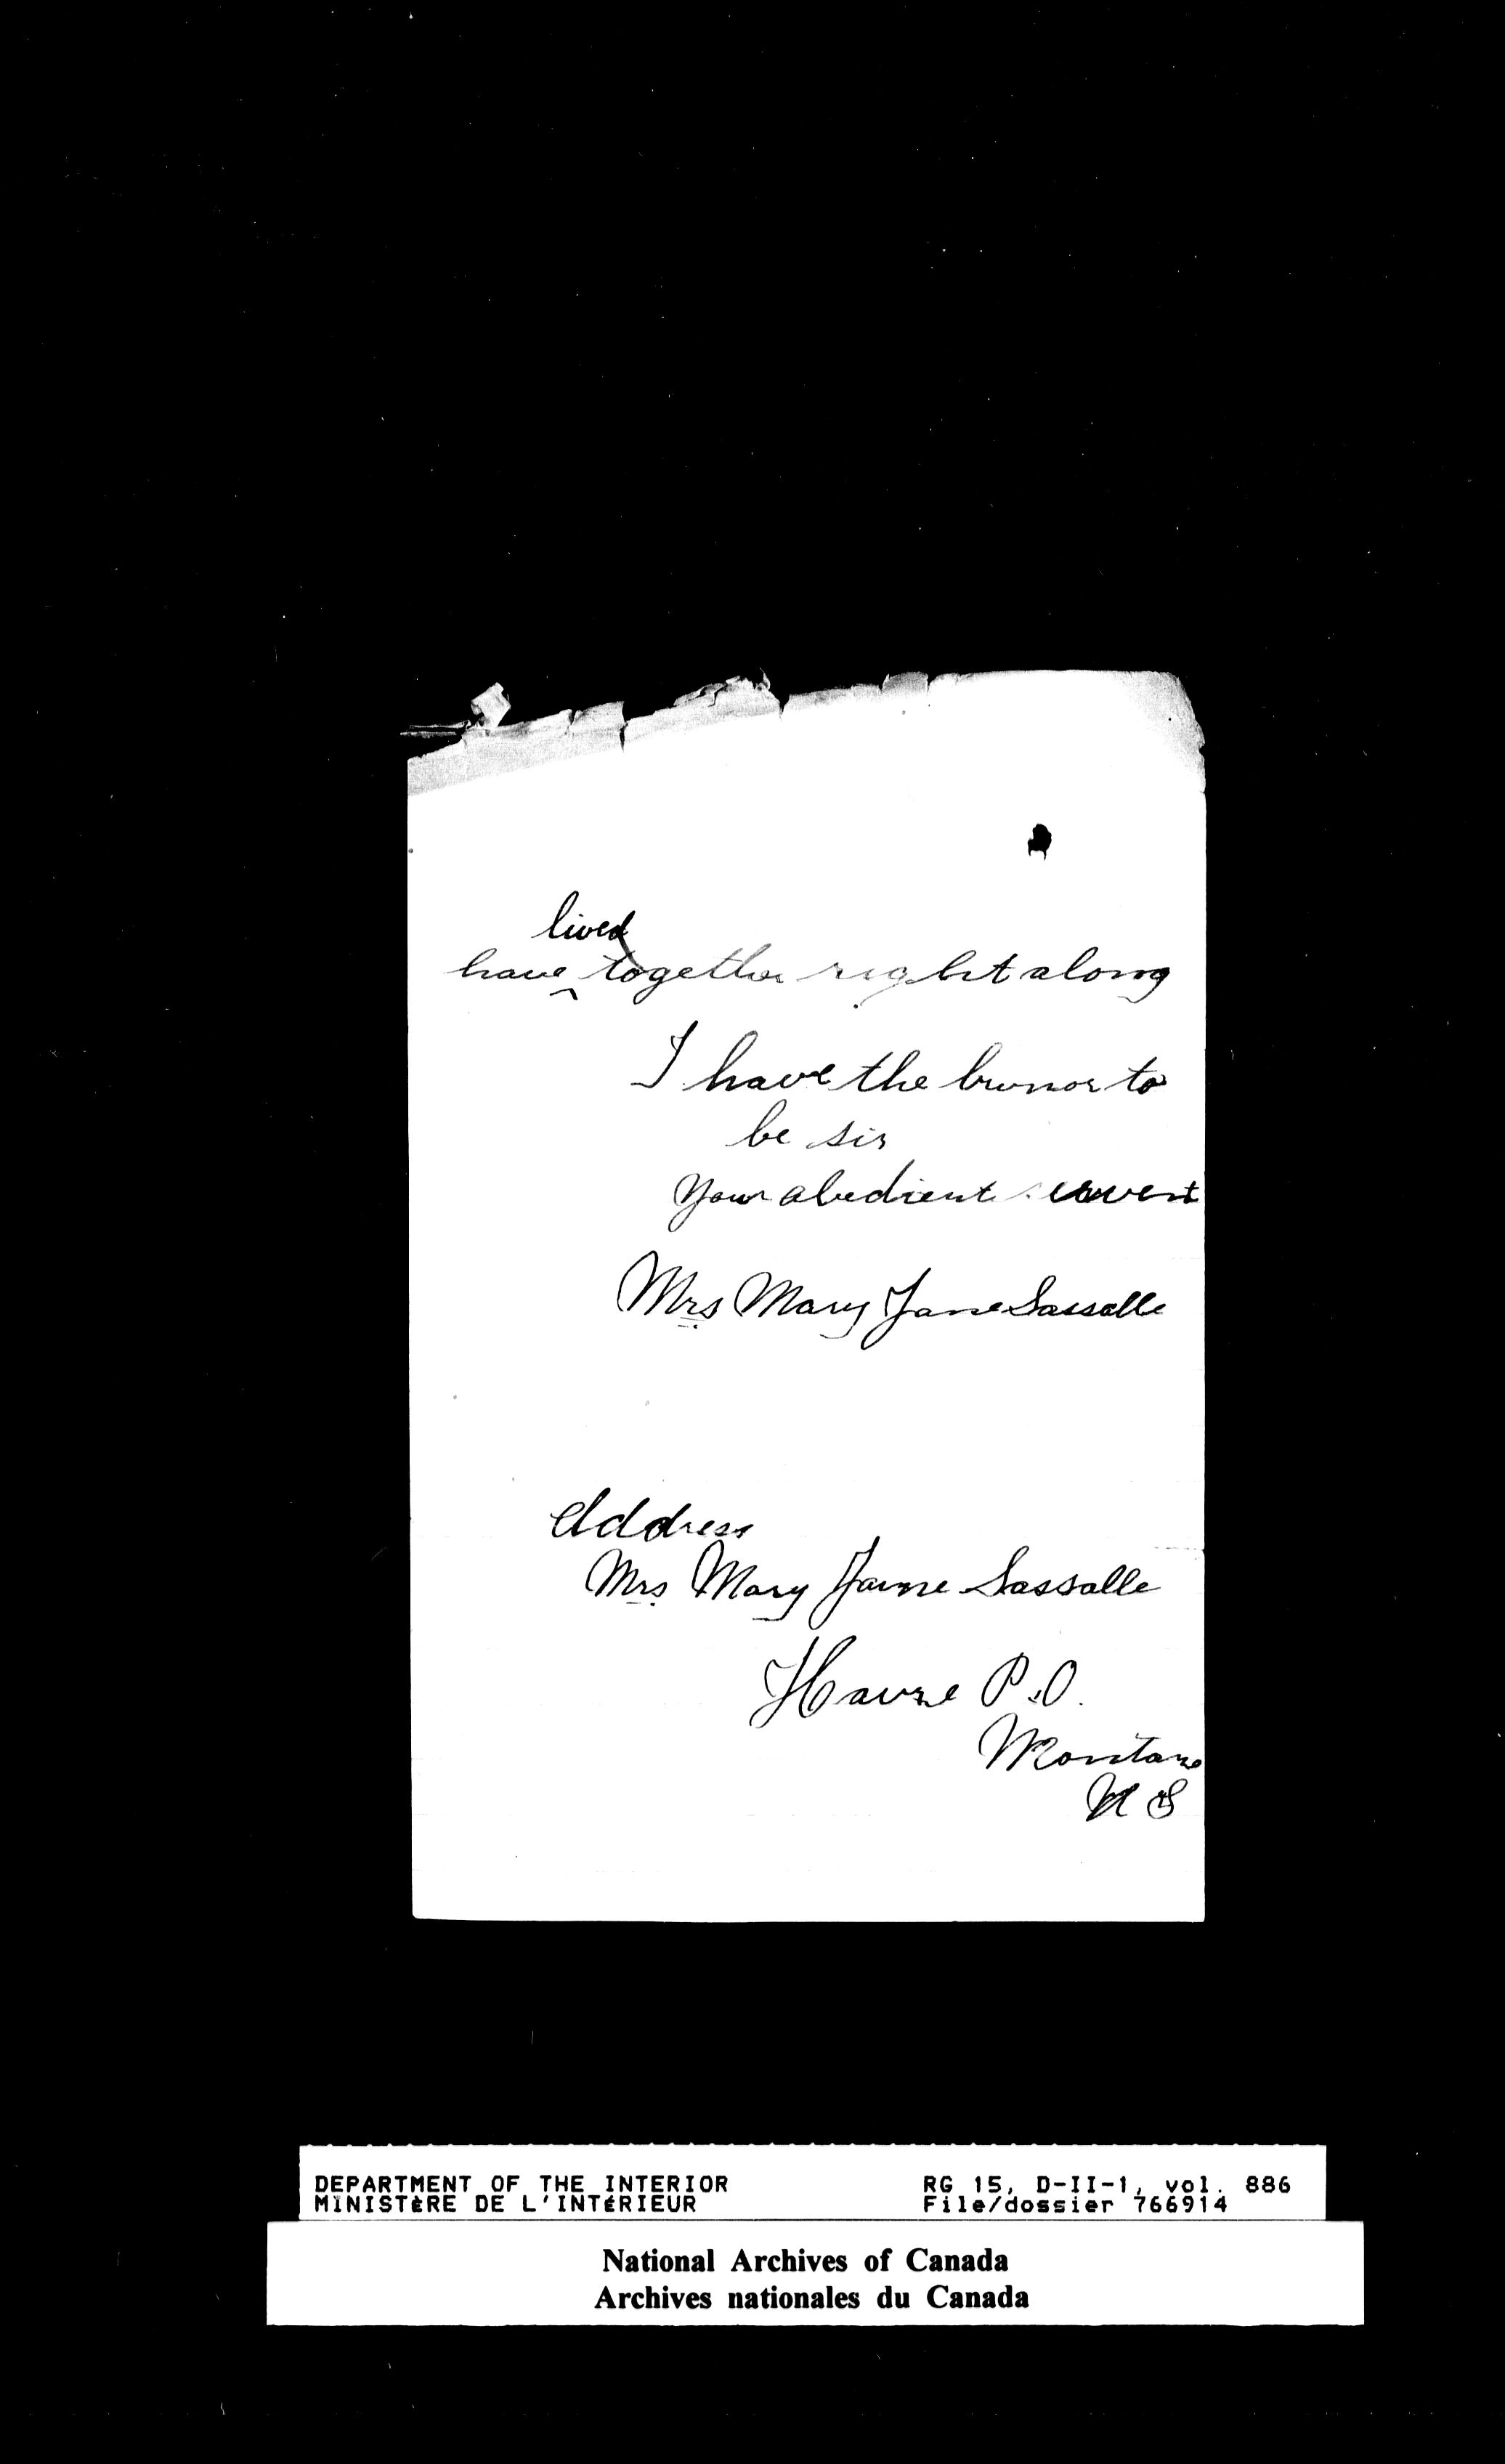 lived
have ‸ together right along
I have the honor to
be sir
your abedient servent
Mrs Mary Jane Lassalle
Address
Mrs Mary Jane Lassalle
Havre P.O.
Montana
U S
DEPARTMENT OF THE INTERIOR RG 15, D-II-1, vol. 886
MINISTÈRE DE L'INTÉRIEUR File/dossier 766914
National Archives of Canada
Archives nationales du Canada